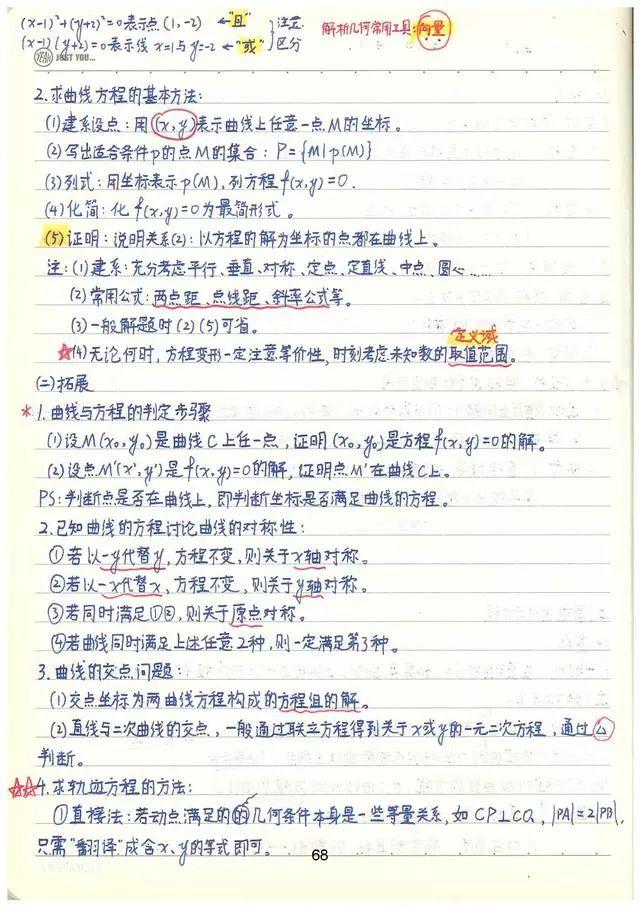 (x-1)²+(y+2)²=0表示点(1,-2) ←"且" 注意 解析几何常用工具:向量
(x-1)(y+2)=0表示线 x=1与y=-2 ←"或" 区分
YEAH JUST YOU...
2.求曲线方程的基本方法:
(1)建系设点:用(x,y)表示曲线上任意一点M的坐标。
(2)写出适合条件p的点M的集合:P={M|p(M)}
(3)列式:用坐标表示p(M),列方程f(x,y)=0.
(4)化简:化f(x,y)=0为最简形式。
(5)证明:说明关系(2):以方程的解为坐标的点都在曲线上。
注:(1)建系:充分考虑平行、垂直、对称、定点、定直线、中点、圆心……
(2)常用公式:两点距、点线距、斜率公式等。
(3)一般解题时(2)(5)可省。
定义域
☆(4)无论何时,方程变形一定注意等价性,时刻考虑未知数的取值范围。
(二)拓展
*1.曲线与方程的判定步骤
(1)设M(x₀,y₀)是曲线C上任一点,证明(x₀,y₀)是方程f(x,y)=0的解。
(2)设点M'(x',y')是f(x,y)=0的解,证明点M'在曲线C上。
PS:判断点是否在曲线上,即判断坐标是否满足曲线的方程。
2.已知曲线的方程讨论曲线的对称性:
①若以-y代替y,方程不变,则关于x轴对称。
②若以-x代替x,方程不变,则关于y轴对称。
③若同时满足①②,则关于原点对称。
④若曲线同时满足上述任意2种,则一定满足第3种。
3.曲线的交点问题:
(1)交点坐标为两曲线方程构成的方程组的解。
(2)直线与二次曲线的交点,一般通过联立方程得到关于x或y的一元二次方程,通过△
判断。
☆☆4.求轨迹方程的方法:
①直接法:若动点满足的的几何条件本身是一些等量关系,如CP⊥CQ,|PA|=2|PB|,
只需"翻译"成含x、y的等式即可。
68